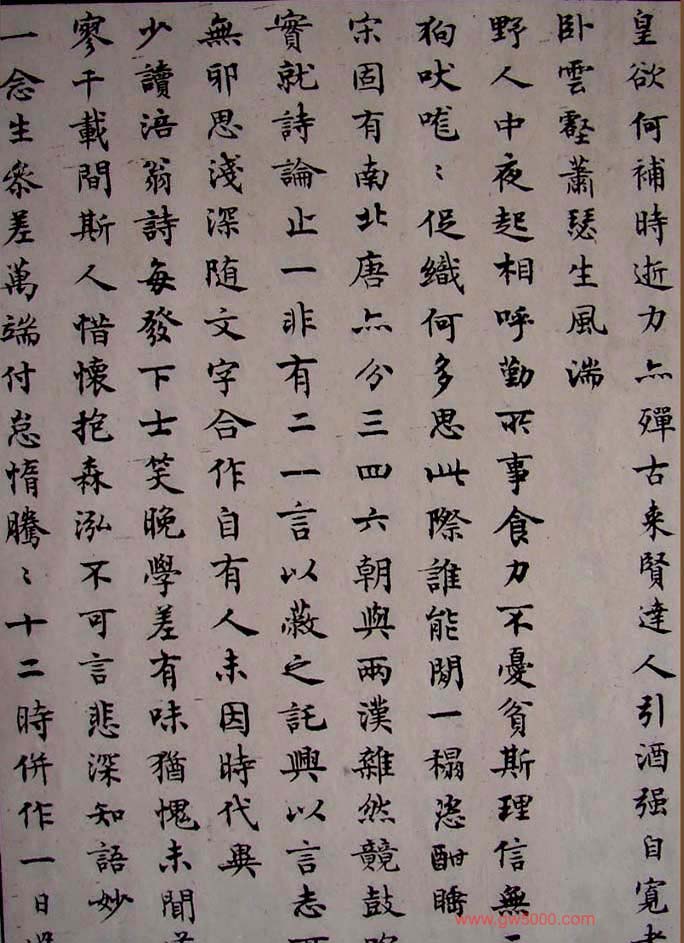 皇欲何補時逝力亦殫古来賢達人引酒强自寬
卧雲壑蕭瑟生風湍
野人中夜起相呼勤所事食力不憂貧斯理信無
狗吠嘊〻促織何多思此際誰能閑一榻恣酣
宋固有南北唐亦分三四六朝與兩漢雜然競鼓
實就詩論止一非有二一言以蔽之託興以言志
無邪思淺深随文字合作自有人未因時代異
少讀涪翁詩每發下士笑晚學差有味猶愧未聞
寥千載間斯人惜懷抱森泓不可言悲深知語妙
一念生叅差萬端付怠惰騰〻十二時併作一日
www.gw5000.com